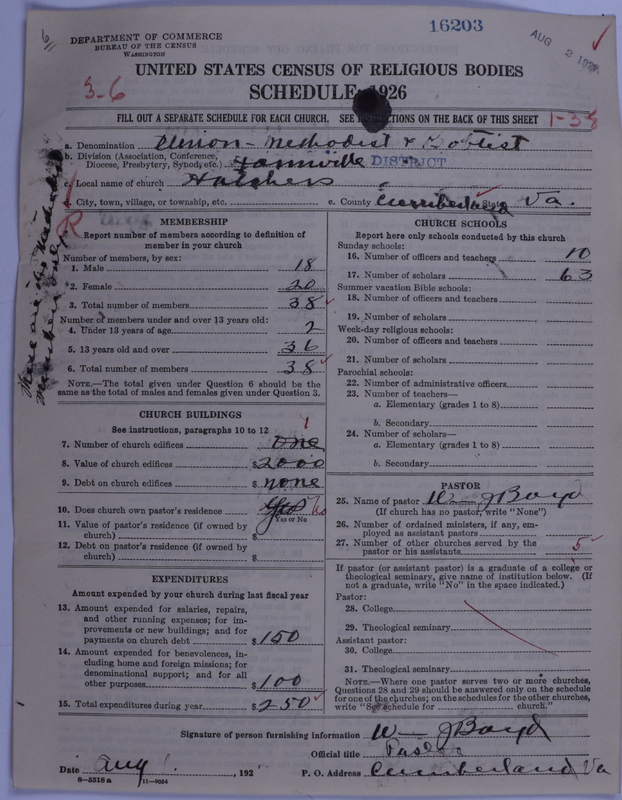 6
16203
AUG 2 192
DEPARTMENT OF COMMERCE
BUREAU OF THE CENSUS
WASHINGTON
UNITED STATES CENSUS OF RELIGIOUS BODIES
3-6
SCHEDULE 1926
FILL OUT A SEPARATE SCHEDULE FOR EACH CHURCH. SEE INSTRUCTIONS ON THE BACK OF THIS SHEET
1-38
a. Denomination Union - Methodist & Baptist
b. Division (Association, Conference, Diocese, Presbytery, Synod, etc.) Farmville DISTRICT
c. Local name of church Hatchers
d. City, town, village, or township, etc. e. County Cumberland State Va.
R
These are the Methodist members only
MEMBERSHIP
Report number of members according to definition of
member in your church
Number of members, by sex:
1. Male 18
2. Female 20
3. Total number of members 38
Number of members under and over 13 years old:
4. Under 13 years of age 2
5. 13 years old and over 36
6. Total number of members 38
NOTE.—The total given under Question 6 should be
same as the total of males and females given under Question 3.
CHURCH BUILDINGS
See instructions, paragraphs 10 to 12
1
7. Number of church edifices one
8. Value of church edifices $ 2000
9. Debt on church edifices $ none
10. Does church own pastor's residence Yes No
Yes or No
11. Value of pastor's residence (if owned by
church) $
12. Debt on pastor's residence (if owned by
church) $
EXPENDITURES
Amount expended by your church during last fiscal year
13. Amount expended for salaries, repairs,
and other running expenses; for im-
provements or new buildings; and for
payments on church debt $ 150
14. Amount expended for benevolences, in-
cluding home and foreign missions; for
denominational support; and for all
other purposes $ 100
15. Total expenditures during year $ 250
CHURCH SCHOOLS
Report here only schools conducted by this church
Sunday schools:
16. Number of officers and teachers 10
17. Number of scholars 63
Summer vacation Bible schools:
18. Number of officers and teachers
19. Number of scholars
Week-day religious schools:
20. Number of officers and teachers
21. Number of scholars
Parochial schools:
22. Number of administrative officers
23. Number of teachers—
a. Elementary (grades 1 to 8)
b. Secondary
24. Number of scholars—
a. Elementary (grades 1 to 8)
b. Secondary
PASTOR
25. Name of pastor W J Boyd
(If church has no pastor, write "None")
26. Number of ordained ministers, if any, em-
ployed as assistant pastors
27. Number of other churches served by the
pastor or his assistants 5
If pastor (or assistant pastor) is a graduate of a college or
theological seminary, give name of institution below. (If
not a graduate, write "No" in the space indicated.)
Pastor:
28. College
29. Theological seminary
Assistant pastor:
30. College
31. Theological seminary
NOTE.—Where one pastor serves two or more churches,
Questions 28 and 29 should be answered only on the schedule
for one of the churches; on the schedules for the other churches,
write "See schedule for church."
Signature of person furnishing information W J Boyd
Official title Pastor
Date Aug , 192 P. O. Address Cumberland Va
8—5518 a 11—9064